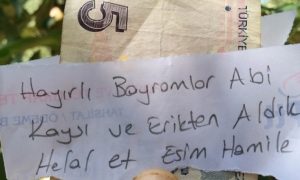 5
TÜRKİYE
Hayırlı Bayramlar Abi
Kaysı ve Erikten Aldık
Helal et Eşim Hamile
TAHSİLAT / ÖDEME